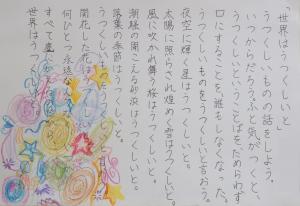 「世界はうつくしいと」
うつくしいものの話をしよう。
いつからだろう。ふと気がつくと、
うつくしいということばを、ためらわず
口にすることを、誰もしなくなった。
うつくしいものをうつくしいと言おう。
夜空に輝く星はうつくしいと。
太陽に照らされ煌めく雪はうつくしいと。
風に吹かれ舞う桜はうつくしいと。
潮騒の聞こえる砂浜はうつくしいと。
落葉の季節はうつくしいと。
うつくしいものをうつくしい
開花した花は
何ひとつ永遠な
すべて塵
世界はうつくしいと。